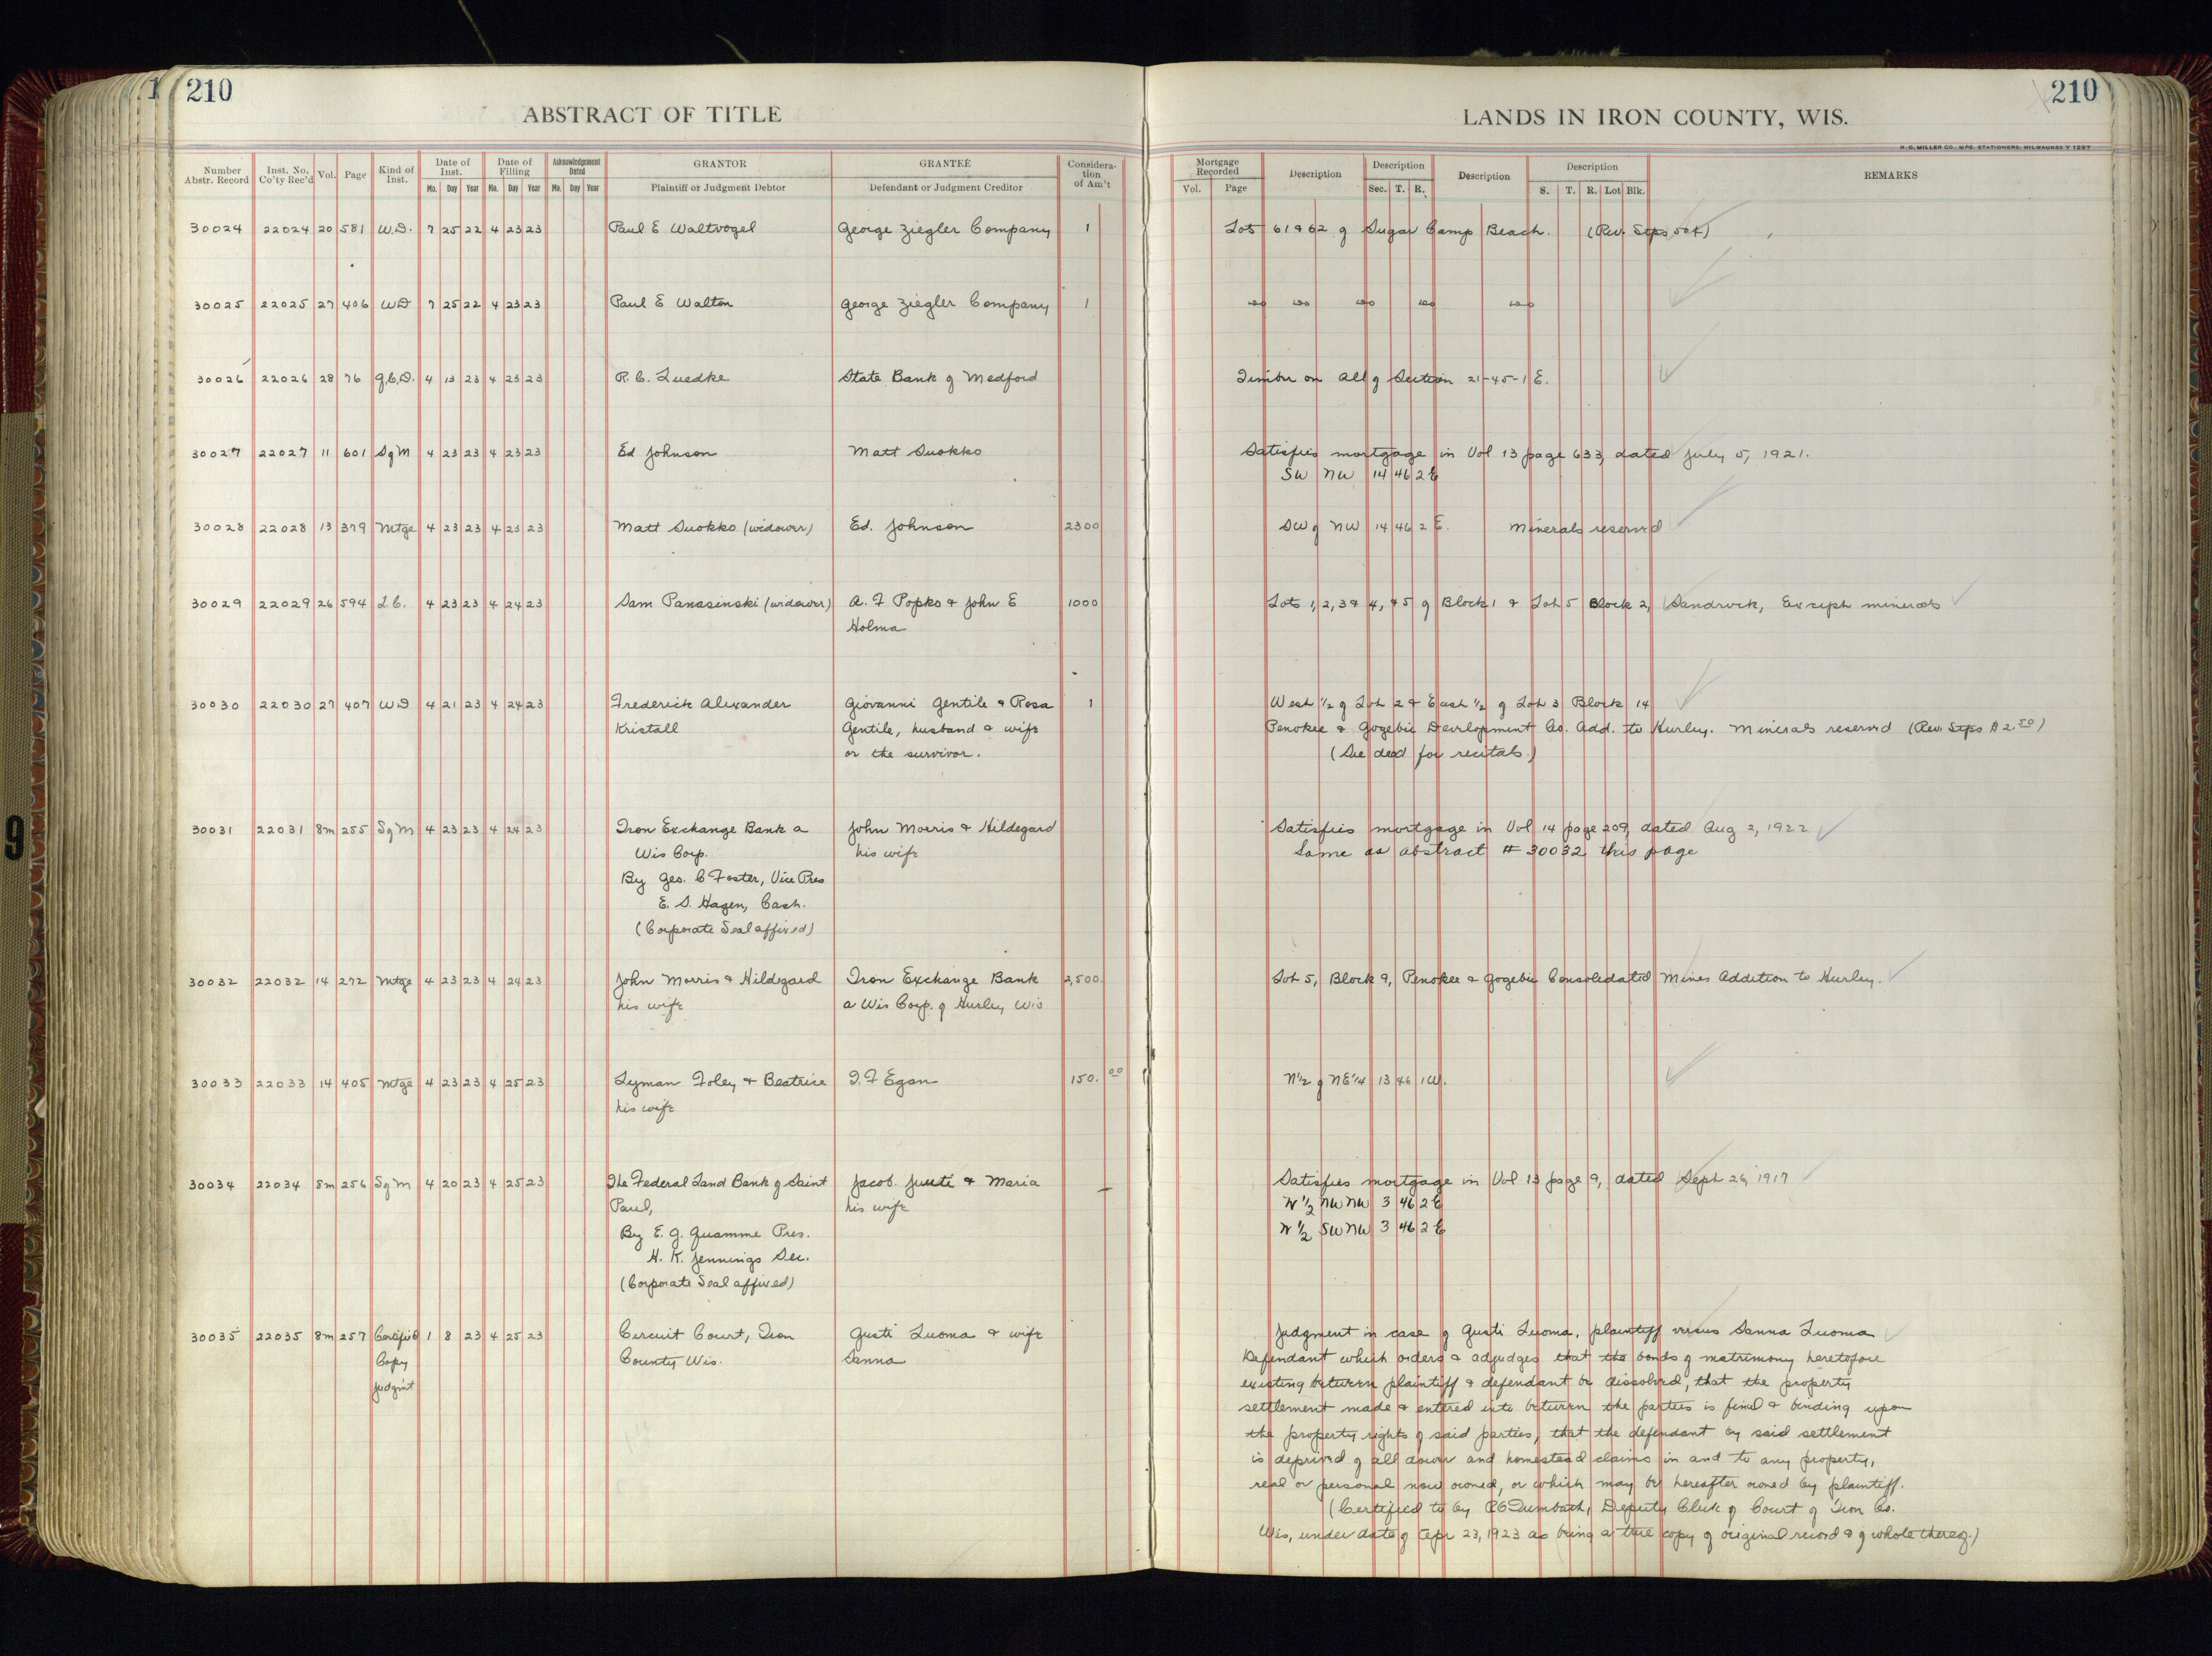 210
210
ABSTRACT OF TITLE
LANDS IN IRON COUNTY, WIS.
H. C. MILLER CO., MFG. STATIONERS, MILWAUKEE
Number Abstr. Record | Inst. No. Co'ty Rec'd | Vol. | Page | Kind of Inst. | Date of Inst. Mo. Day Year | Date of Filing Mo. Day Year | Acknowledgement Dated Mo. Day Year | GRANTOR Plaintiff or Judgment Debtor | GRANTEE Defendant or Judgment Creditor | Consideration of Am't | Mortgage Recorded Vol. Page | Description | Description Sec. T. R. | Description | Description S. T. R. Lot Blk. | REMARKS
30024 22024 20 581 W.D. 7 25 22 4 23 23 Paul E Waltvogel George Ziegler Company 1 Lots 61 & 62 of Sugar Camp Beach. (Rev. Stps 50¢)
30025 22025 27 406 WD 7 25 22 4 23 23 Paul E Walton George Ziegler Company 1 " " " " "
30026 22026 28 76 Q.C.D. 4 13 23 4 23 23 R. C. Luedke State Bank of Medford Timber on All of Section 21-45-1 E.
30027 22027 11 601 S of M 4 23 23 4 23 23 Ed Johnson Matt Suokko Satisfies mortgage in Vol 13 page 633, dated July 5, 1921.
SW NW 14 46 2 E
30028 22028 13 379 Mtge 4 23 23 4 23 23 Matt Suokko (widower) Ed. Johnson 2300 SW of NW 14 46 2 E. Minerals reserved
30029 22029 26 594 L.C. 4 23 23 4 24 23 Sam Panasinski (widower) A. F Popko & John E 1000 Lots 1, 2, 3 & 4, & 5 of Block 1 & Lot 5 Block 2, Sandrock, Except minerals
Holma
30030 22030 27 407 WD 4 21 23 4 24 23 Frederick Alexander Giovanni Gentile & Rosa 1 West 1/2 of Lot 2 & East 1/2 of Lot 3 Block 14
Kristall Gentile, husband & wife Penokee & Gogebic Development Co. Add. to Hurley. Minerals reserved (Rev. Stps $2.50)
or the survivor. (See deed for recitals)
30031 22031 8m 255 S of M 4 23 23 4 24 23 Iron Exchange Bank a John Morris & Hildegard Satisfies mortgage in Vol 14 page 209, dated Aug 2, 1922
Wis Corp. his wife Same as abstract # 30032 this page
By Geo. C Foster, Vice Pres
E. S. Hagen, Cash.
(Corporate Seal affixed)
30032 22032 14 272 Mtge 4 23 23 4 24 23 John Morris & Hildegard Iron Exchange Bank 2,500. Lot 5, Block 9, Penokee & Gogebic Consolidated Mines Addition to Hurley.
his wife a Wis Corp. of Hurley, Wis
30033 22033 14 405 Mtge 4 23 23 4 25 23 Lyman Foley & Beatrice T. F Egan 150.00 N 1/2 of NE 1/4 13 46 1W.
his wife
30034 22034 8m 256 S of M 4 20 23 4 25 23 The Federal Land Bank of Saint Jacob Juuti & Maria — Satisfies mortgage in Vol 13 page 9, dated Sept 26, 1917
Paul, his wife W 1/2 NW NW 3 46 2 E
By E. G. Quamme Pres. W 1/2 SW NW 3 46 2 E
H. K. Jennings Sec.
(Corporate Seal affixed)
30035 22035 8m 257 Certified 1 8 23 4 25 23 Circuit Court, Iron Gusti Luoma & wife Judgment in case of Gusti Luoma, plaintiff versus Sanna Luoma
Copy County Wis. Sanna Defendant which orders & adjudges that the bonds of matrimony heretofore
Judgm't existing between plaintiff & defendant be dissolved, that the property
settlement made & entered into between the parties is final & binding upon
the property rights of said parties, that the defendant by said settlement
is deprived of all dower and homestead claims in and to any property,
real or personal now owned, or which may be hereafter owned by plaintiff.
(Certified to by Deputy Clerk of Court of Iron Co.
Wis, under date of Apr 23, 1923 as being a true copy of original record & of whole thereof.)
9